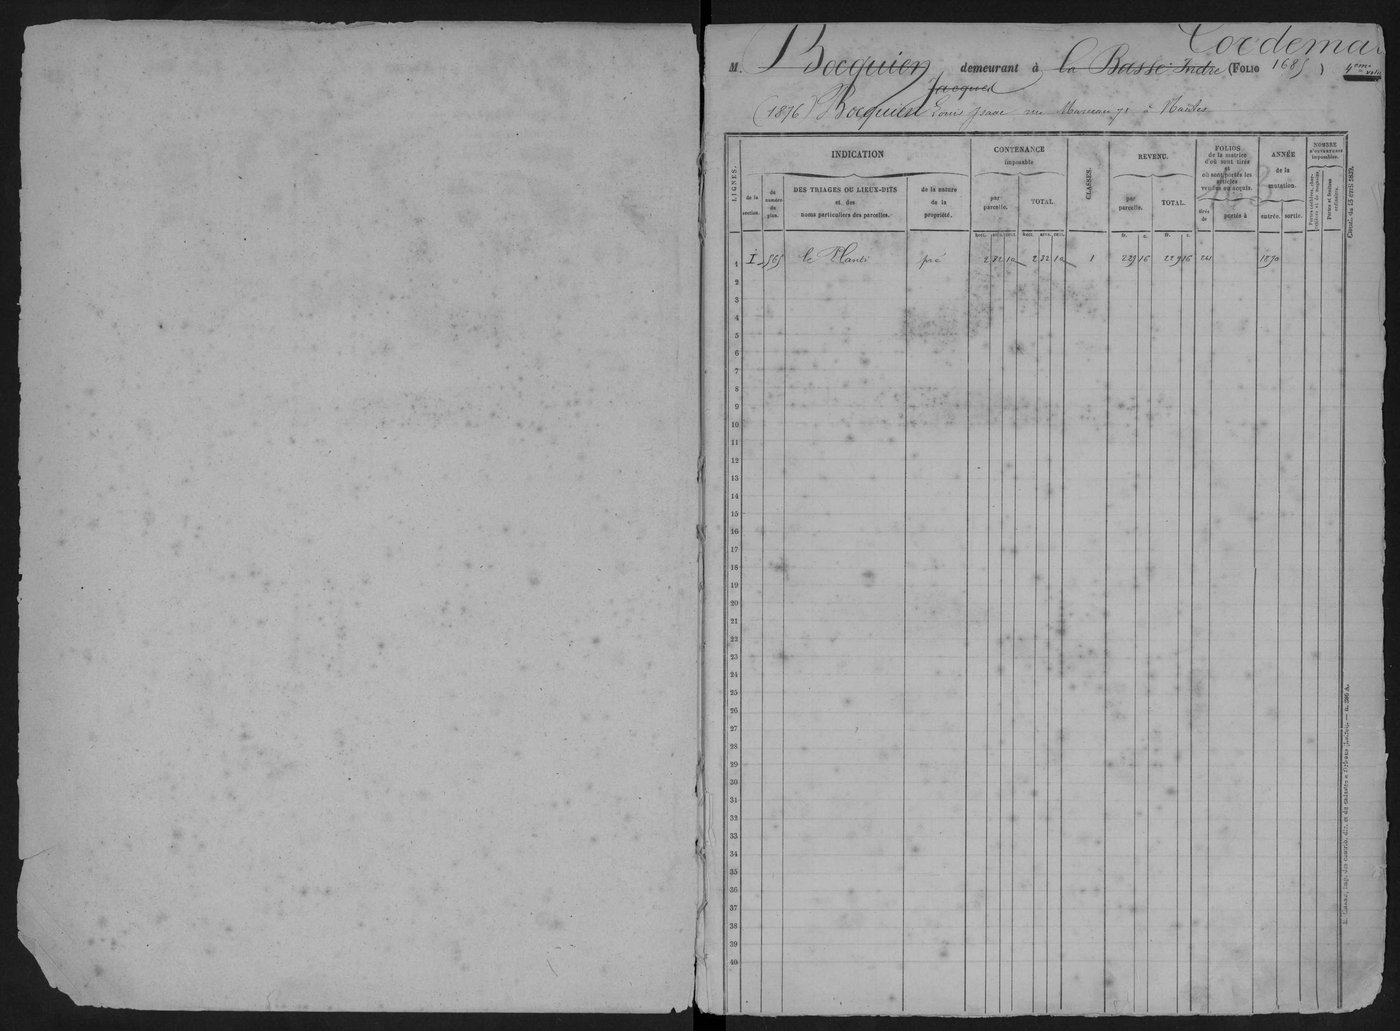 Cordemai
M. Bocquien demeurant à la Basse Indre (FOLIO 1685) 4eme volu
Jacques
(1876) Bocquien Louis Isaac rue Marceau à Nantes
LIGNES.
INDICATION
de la section.
du numéro du plan.
DES TRIAGES OU LIEUX-DITS et des noms particuliers des parcelles.
de la nature de la propriété.
CONTENANCE imposable
par parcelle.
TOTAL.
hect. ares. cent. hect. ares. cent.
CLASSES.
REVENU.
par parcelle.
TOTAL.
fr. c. fr. c.
FOLIOS de la matrice d'où sont tirés et où sont portés les articles vendus ou acquis.
tirés de
portés à
ANNÉE de la mutation.
entrée. sortie.
NOMBRE D'OUVERTURES imposables.
Portes et fenêtres ordinaires.
Circul. du 15 avril 1839.
1 I 565 le Planti pré 2 82 10 2 82 10 1 229 16 229 16 1870
2
3
4
5
6
7
8
9
10
11
12
13
14
15
16
17
18
19
20
21
22
23
24
25
26
27
28
29
30
31
32
33
34
35
36
37
38
39
40